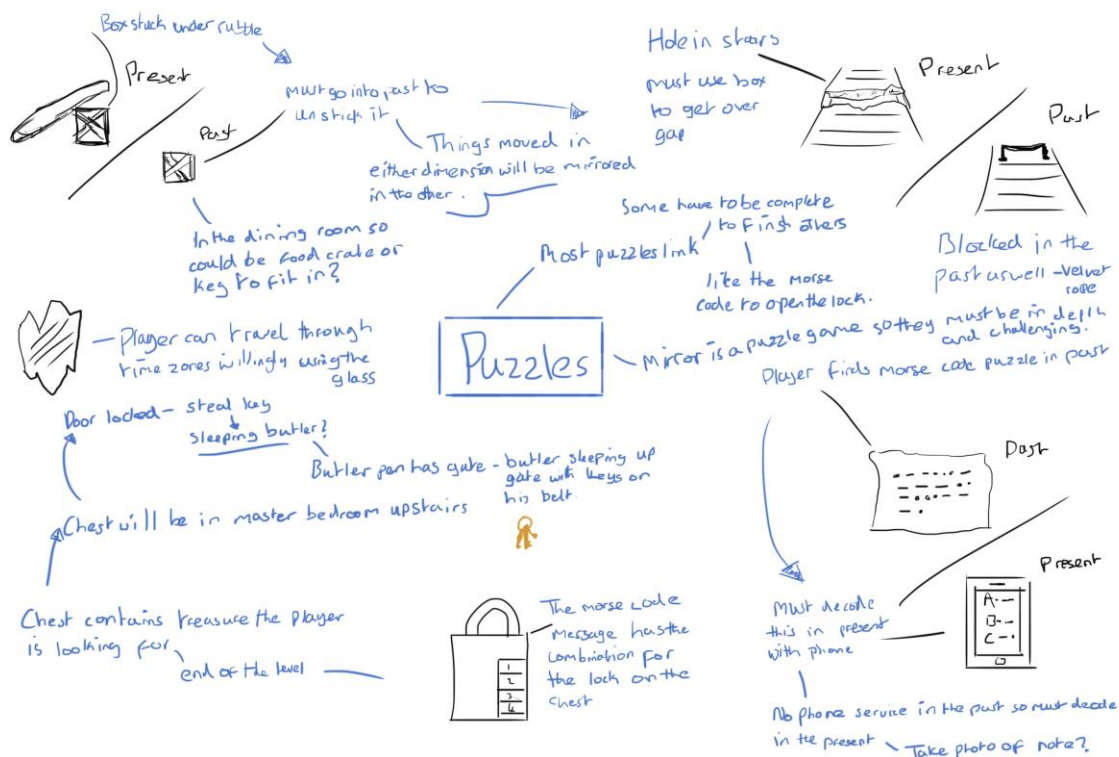 Box stuck under rubble
Present
Past
Must go into past to
unstick it
Things moved in
either dimension will be mirrored
in the other.
In the dining room so
could be food crate or
key to fit in?
Hole in stairs
must use box
to get over
gap
Present
Past
Blocked in the
past aswell - velvet
rope
Most puzzles link
Some have to be complete
to finish others
like the morse
code to open the lock.
Puzzles
Mirror is a puzzle game so they must be in depth
and challenging.
Player can travel through
time zones willingly using the
glass
Door locked - steal key
sleeping butler?
Butler pen has gate - butler sleeping up
gate with keys on
his belt.
Chest will be in master bedroom upstairs
Chest contains treasure the player
is looking for
end of the level
1
2
3
4
The morse code
message has the
combination for
the lock on the
chest
Player finds morse code puzzle in past
Past
Present
A·—
B-—
C-·
Must decode
this in present
with phone
No phone service in the past so must decode
in the present
Take photo of note?